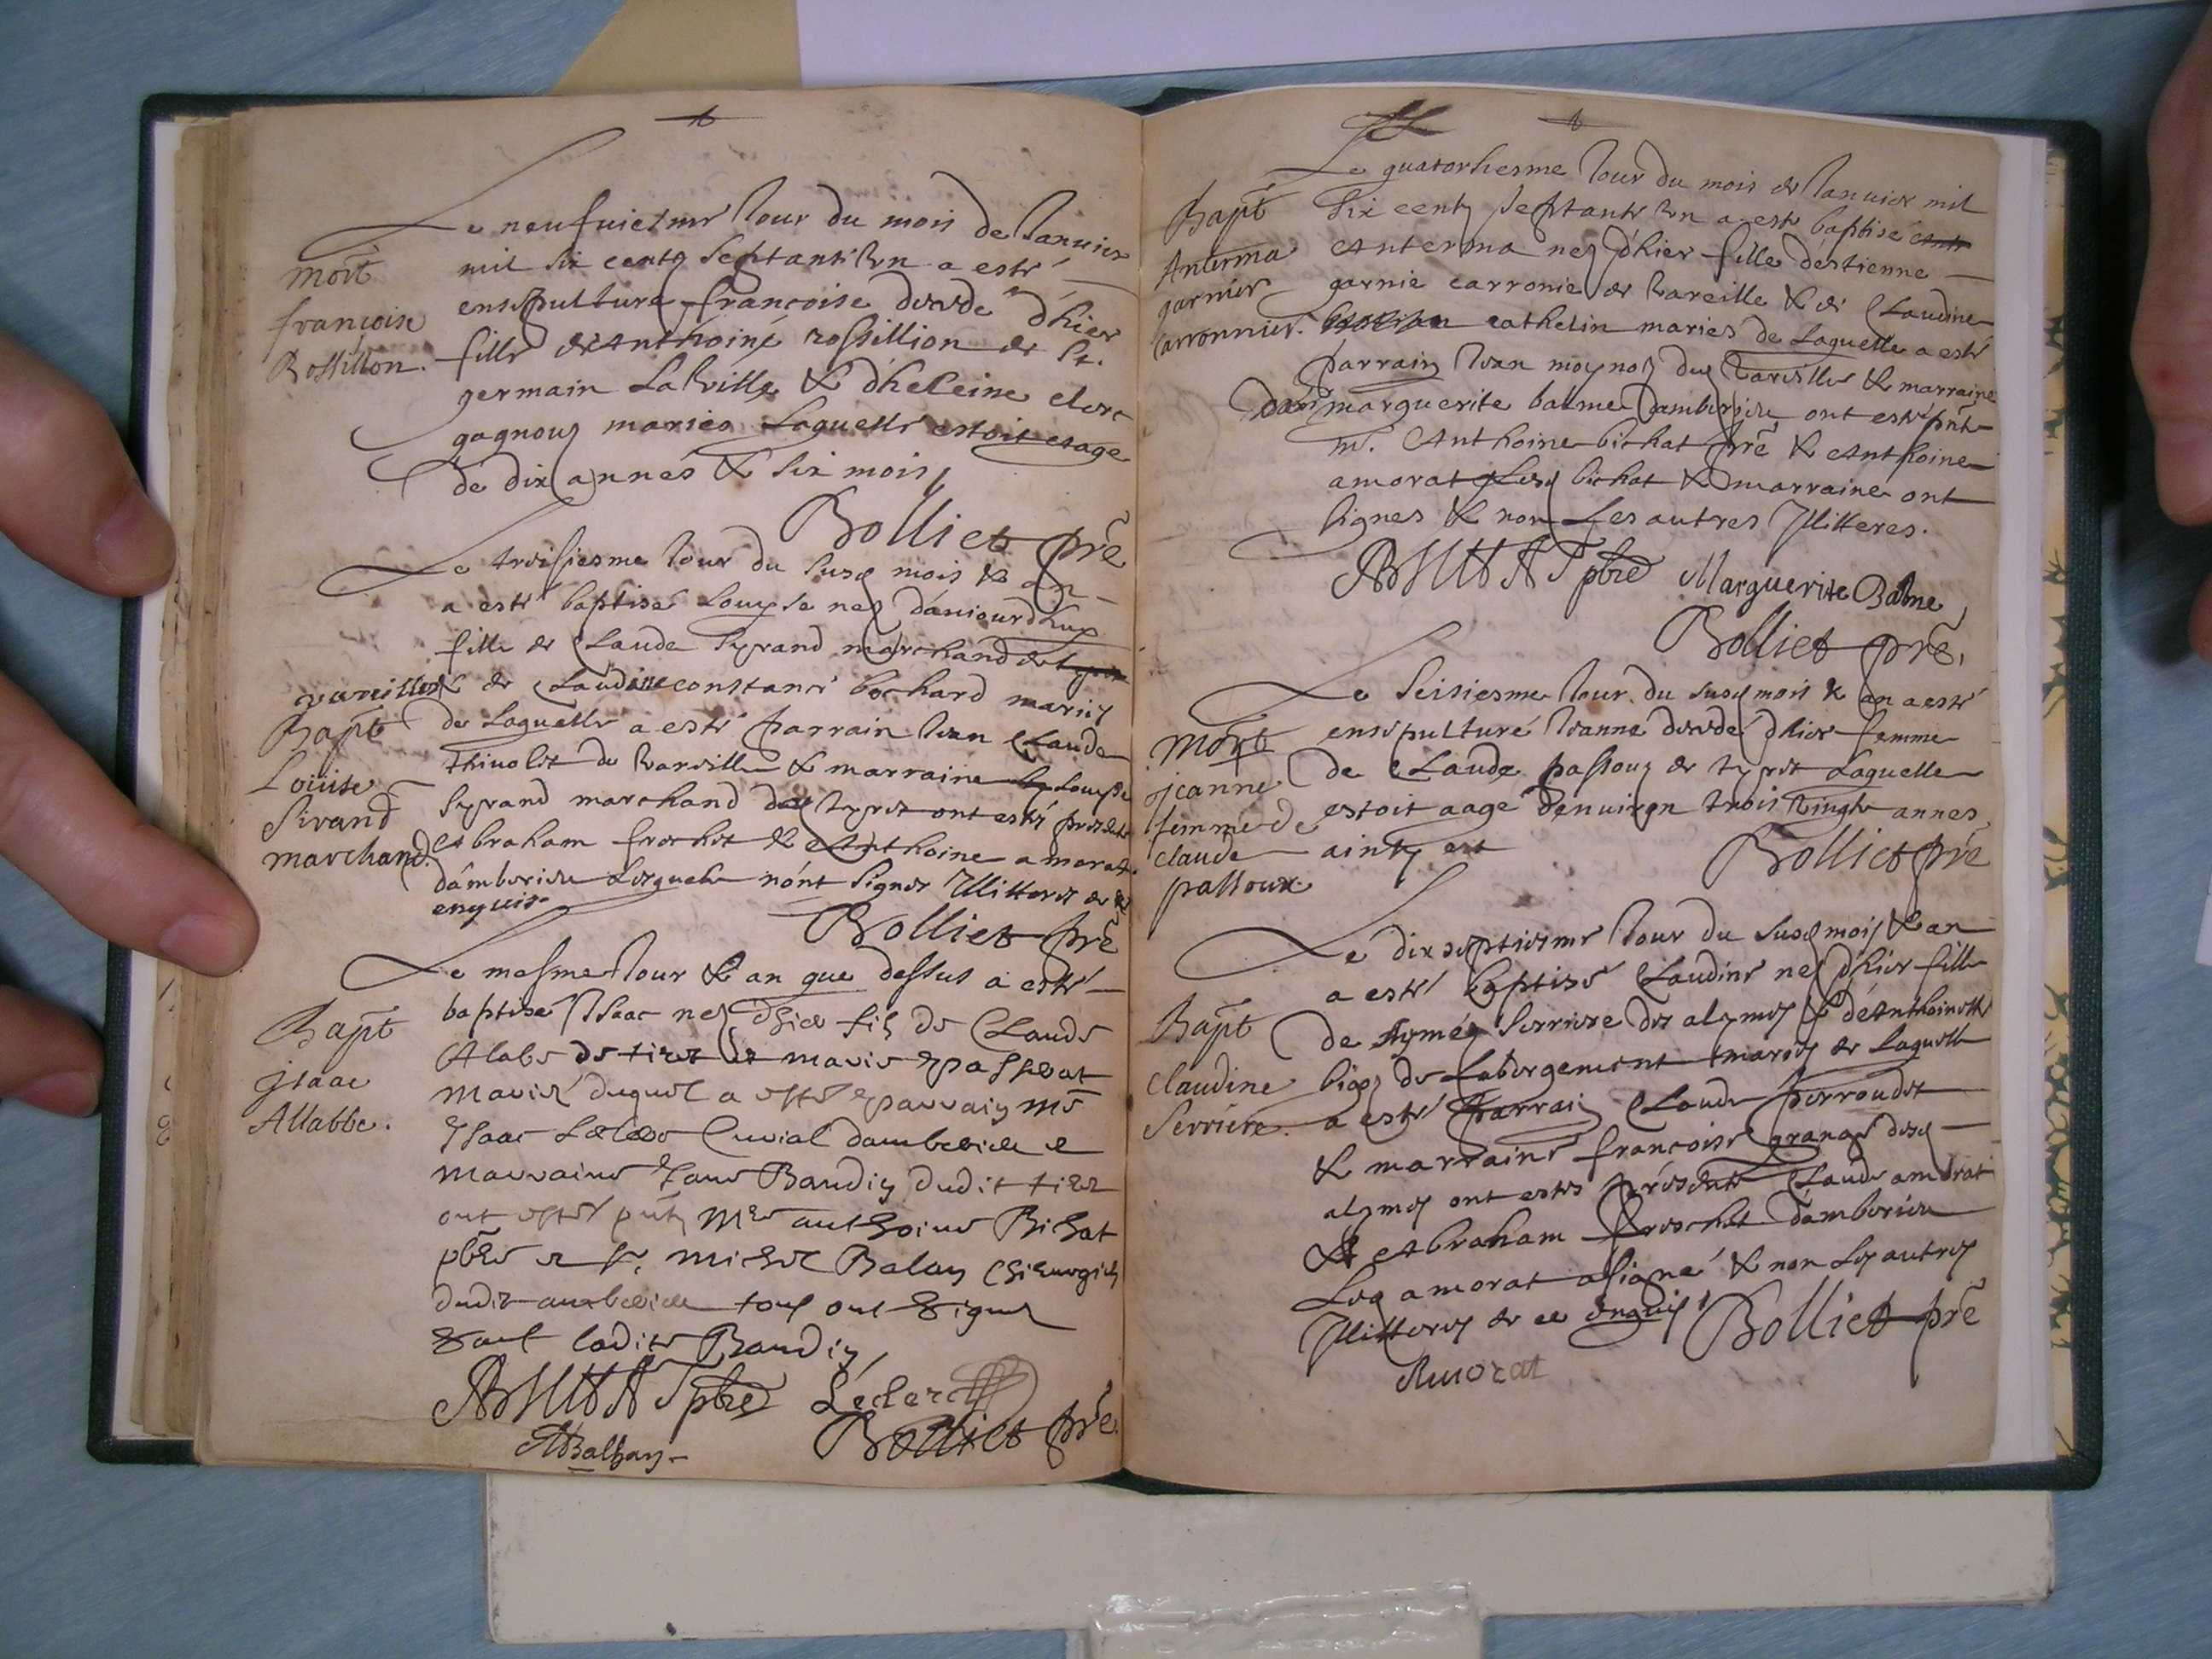 Le neufuiesme Iour du mois de Ianuier
mil six centz septant Un a esté
ensepulturé françoise decedé d'hier
fille de Anthoine rossillion de St.
germain La Ville & d'heleine clert
gagnouz mariés Laquelle estoit eage
de dix années & six mois,
Bolliet pre
mort
françoise
Rossillon.
Le troisiesme Iour du susd mois & an
a esté baptisé Louyse nez d'auiourdhuy
fille de Claude Syrand marchand de
& de Claudine constance bochard mariez
de Laquelle a esté parrain Iean Claude
Thinolet de Vareille & marraine Louyse
Syrand marchand dud tyret ont esté presents
Abraham frochet & Anthoine amorat
d'amberieu Lesquels nont signes Illitteres de ce
enquis
Bolliet pre
vareilles
Bapt
Loüise
Sirand
marchand.
Le mesme Iour & an que dessus a esté
baptisé Isaac nez d'hier filz de Claude
Alabe de tiret et marie passerat
mariés duquel a esté parrain Me
Isaac Curial damberieu et
marraine Iane Baudin dudit tiret
ont estés pntz Mre anthoine Bichat
pbre et sr. michel Balan Chirurgien
dudit amberieu tous ont signes
sauf ladite Baudin,
Bichat pbre Leclerc
MBalhan
Bolliet pre
Bapt
jsaac
Allabbe.
Le quatorhiesme Iour du mois de Ianuier mil
Six centz septant Un a esté baptisé
Anterma nez d'hier fille d'estienne
garnié carronié de Vareille & de Claudine
cathelin mariés de Laquelle a esté
parrain Iean moynoz dud Vareilles & marraine
marguerite balme damberieu ont esté pnts
m. Anthoine bichat pre & Anthoine
amorat Lesd bichat & marraine ont
signes & non Les autres Illitteres.
Bichat pbre Marguerite Balme
Bolliet pre,
Bapt
Anterma
garnier
carronnier.
Le seisiesme Iour du susd mois & an a esté
ensepulturé Ieanne decedé d'hier femme
de Claude passouz de tyret Laquelle
estoit aagé denuiron trois Vingts annes
ainsy est
Bolliet pre
Mort
jeanne
femme de
claude
passoux.
Le dix septiesme Iour du susd mois & an
a esté baptisé Claudine nez d'hier fille
de Aymé Serriere des alymes & de Anthoinette
bigoz de Labergement mariés de Laquelle
a esté parrain Claude perroudet
& marraine françoise grange desd
alymes ont estes présents Claude amorat
& Abraham frochet d'amberieu
Led amorat a signé & non Les autres
Illitteres de ce enquis
Bolliet pre
Amorat
Bapt
claudine
Serriere.